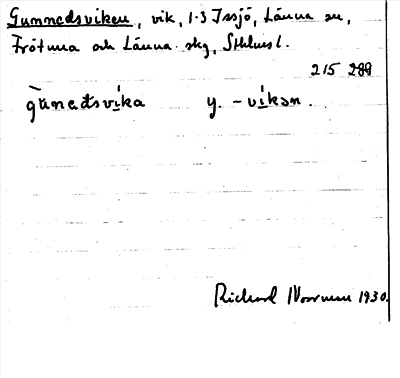 Gunnedsviken, vik, 1·3 Issjö, Länna sn,
Frötuna och Länna skg, Sthlms l.
215 288
gŭnedsvika y. -vikən.
Richard Norrman 1930.